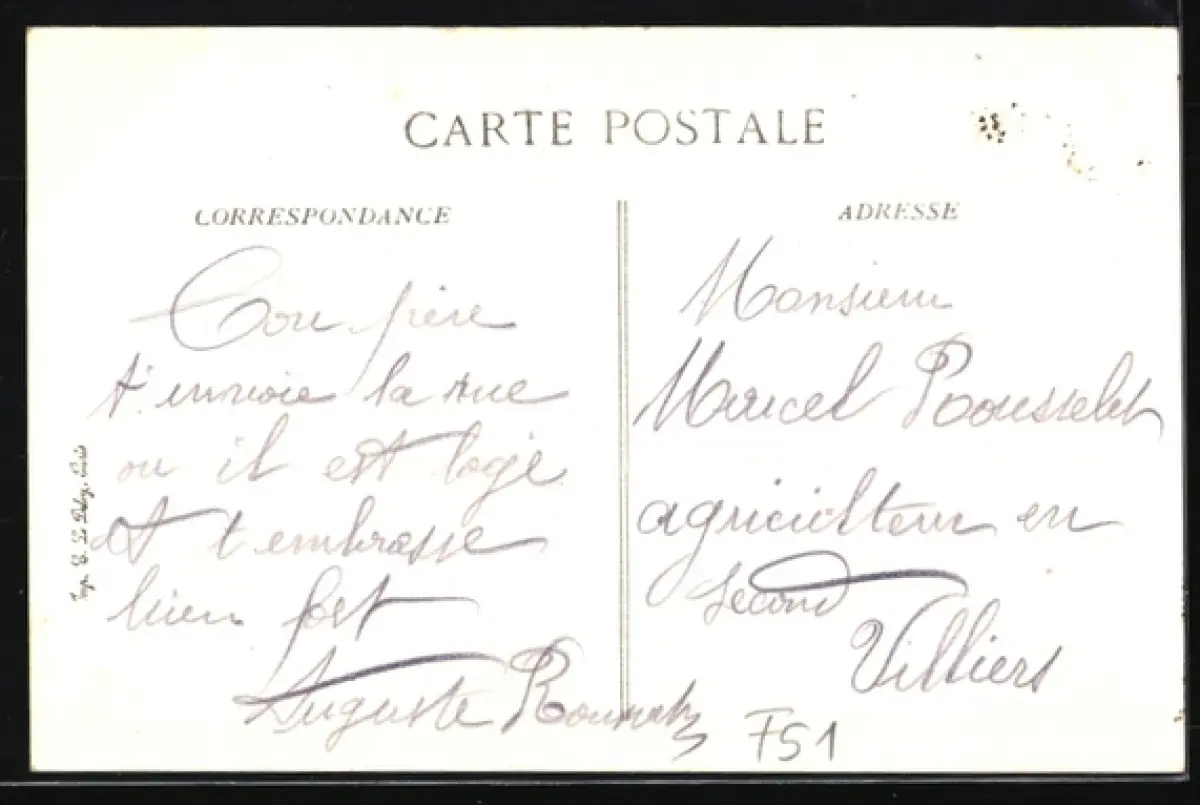 CARTE POSTALE
CORRESPONDANCE
ADRESSE
Ton père
t'envoie la rue
ou il est logé
et t'embrasse
bien fort
Auguste
Monsieur
Marcel Rousselet
agriciolteur en
second
Villiers
F51
Imp. Paris